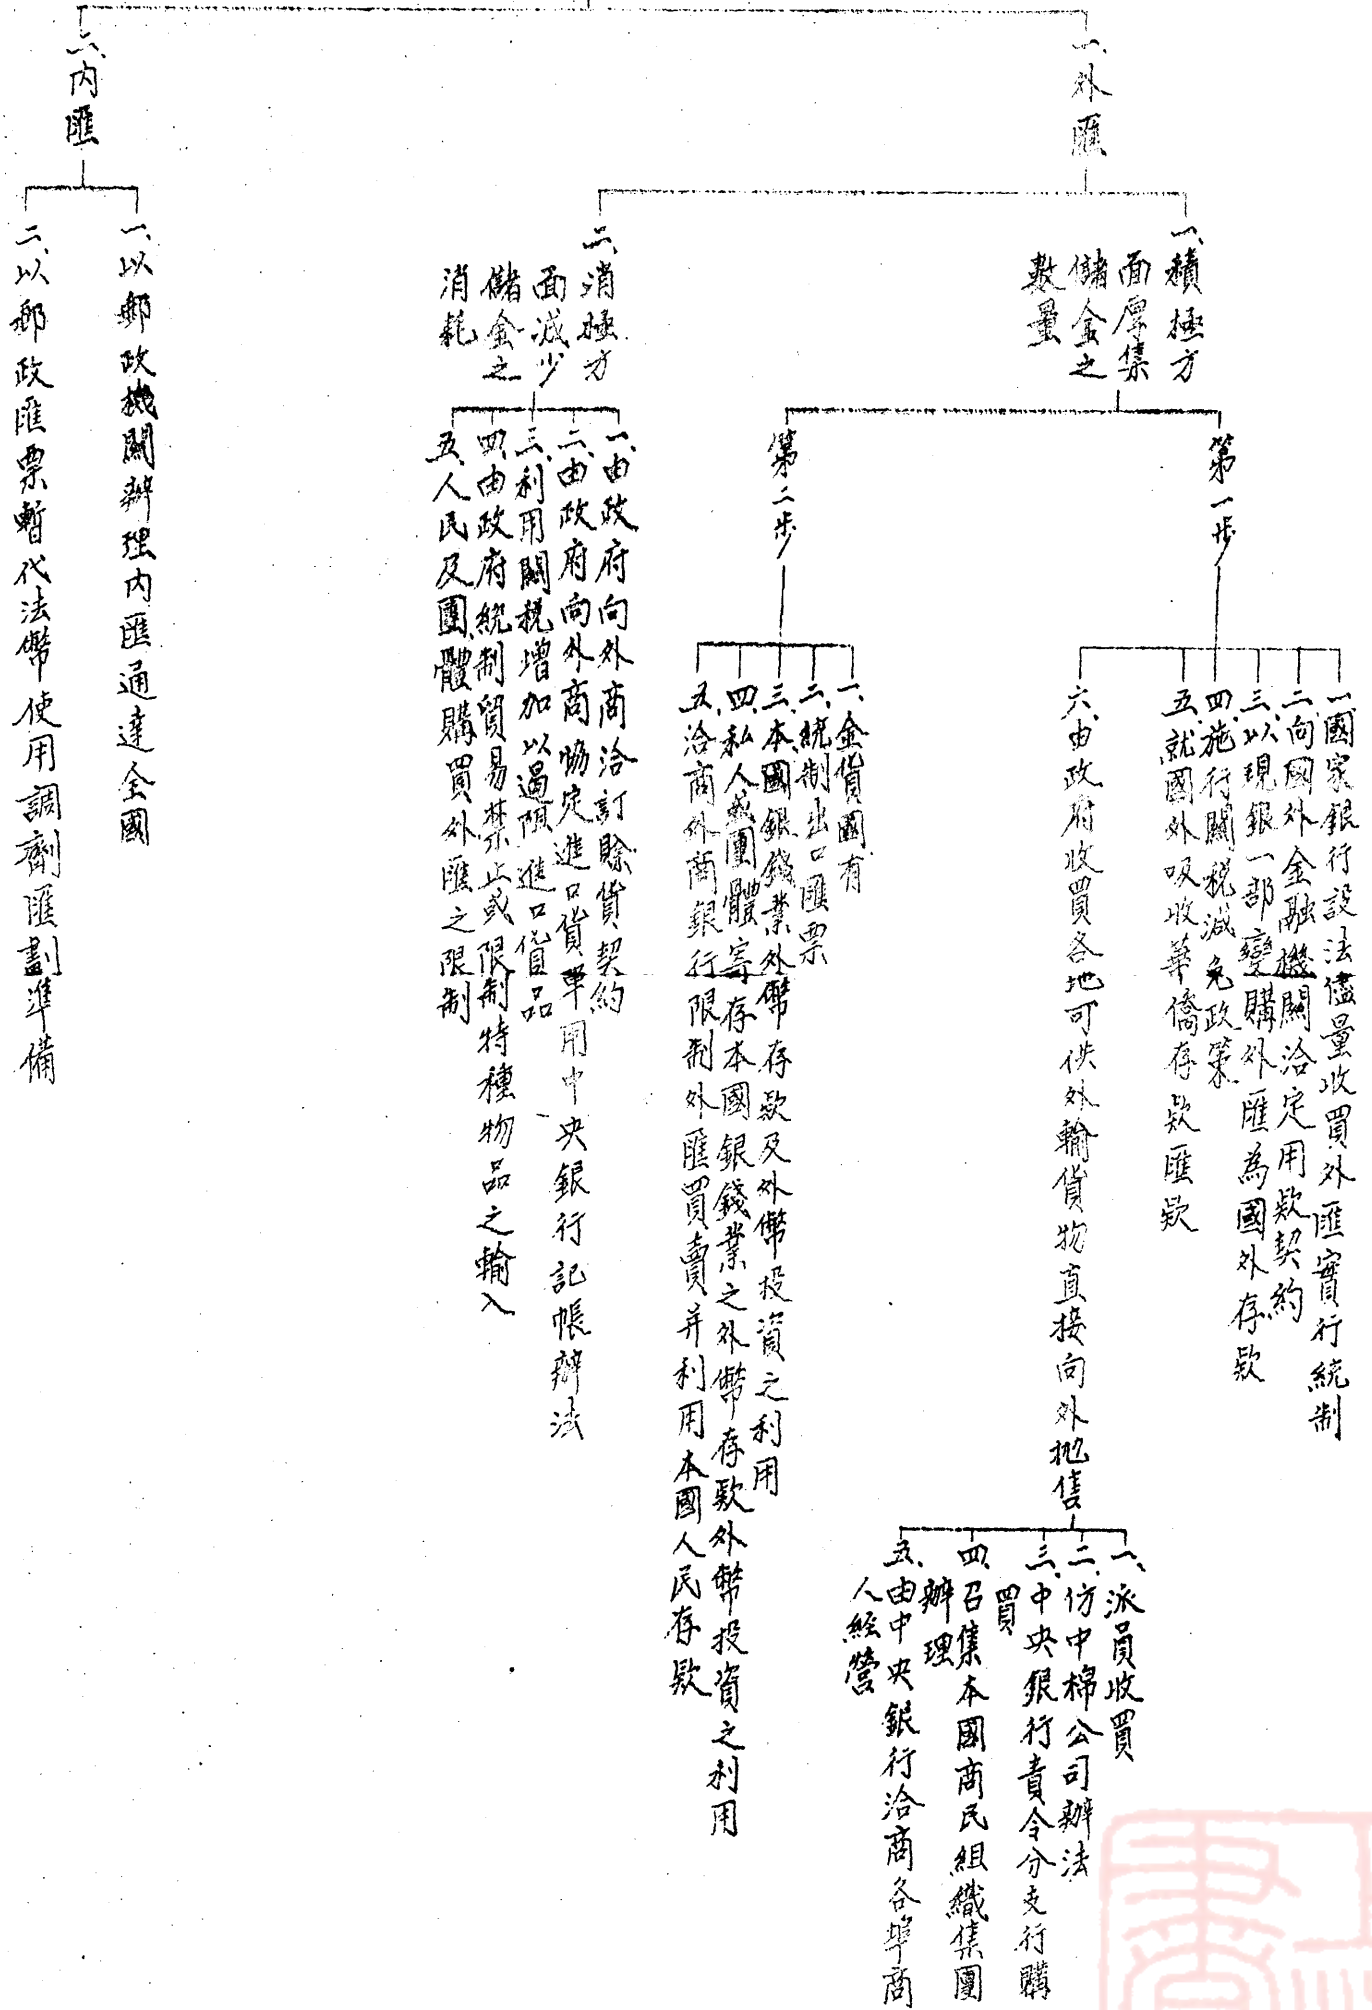 一、外匯
一、積極方
面厚集
儲金之
數量
第一步
一、國家銀行設法儘量收買外匯實行統制
二、向國外金融機關洽定用欵契約
三、以現銀一部變購外匯為國外存欵
四、施行關稅減免政策
五、就國外吸收華僑存欵匯欵
六、由政府收買各地可供外輸貨物直接向外拋售
一、派員收買
二、仿中棉公司辦法
三、中央銀行責令分支行購
買
四、召集本國商民組織集團
辦理
五、由中央銀行洽商各埠商
人經營
第二步
一、金貨國有
二、統制出口匯票
三、本國銀錢業外幣存欵及外幣投資之利用
四、私人或團體寄存本國銀錢業之外幣存欵外幣投資之利用
五、洽商外商銀行限制外匯買賣并利用本國人民存欵
二、消極方
面減少
儲金之
消耗
一、由政府向外商洽訂賒貨契約
二、由政府向外商協定進口貨單用中央銀行記帳辦法
三、利用關稅增加以遏阻進口貨品
四、由政府統制貿易禁止或限制特種物品之輸入
五、人民及團體購買外匯之限制
二、內匯
一、以郵政機關辦理內匯通達全國
二、以郵政匯票暫代法幣使用調劑匯劃準備